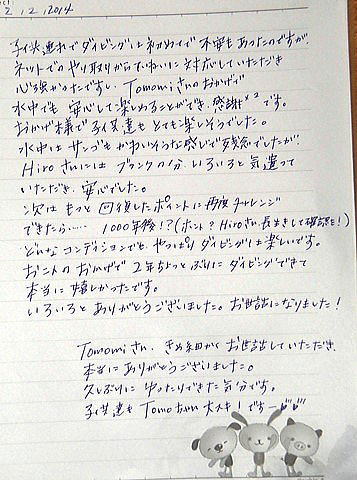 2, 2, 2014
子供連れでダイビングは初めてで不安もあったのですが
ネットでのやり取りからていねいに対応していただき
心強かったですし、Tomomiさんのおかげで
水中でも安心して楽しめることができ、感謝×2です。
おかげ様で子供達もとても楽しそうでした。
水中はサンゴもかわいそうな感じで残念でしたが
Hiroさんにはブランクの分いろいろと気遣って
いただき、安心でした。
次はもっと回復したポイントに再度チャレンジ
できたら…… 1000年後!?(ホント? Hiroさん長生きして確認を!)
どんなコンディションでも、やっぱりダイビングは楽しいです。
お二人のおかげで2年ちょっとぶりにダイビングできて
本当に嬉しかったです。
いろいろとありがとうございました。お世話になりました!
Tomomiさん、きめ細かくお世話していただき、
本当にありがとうございました。
久しぶりにゆったりできた気分です。
子供達もTomoちゃん大スキ!ですー♡♡